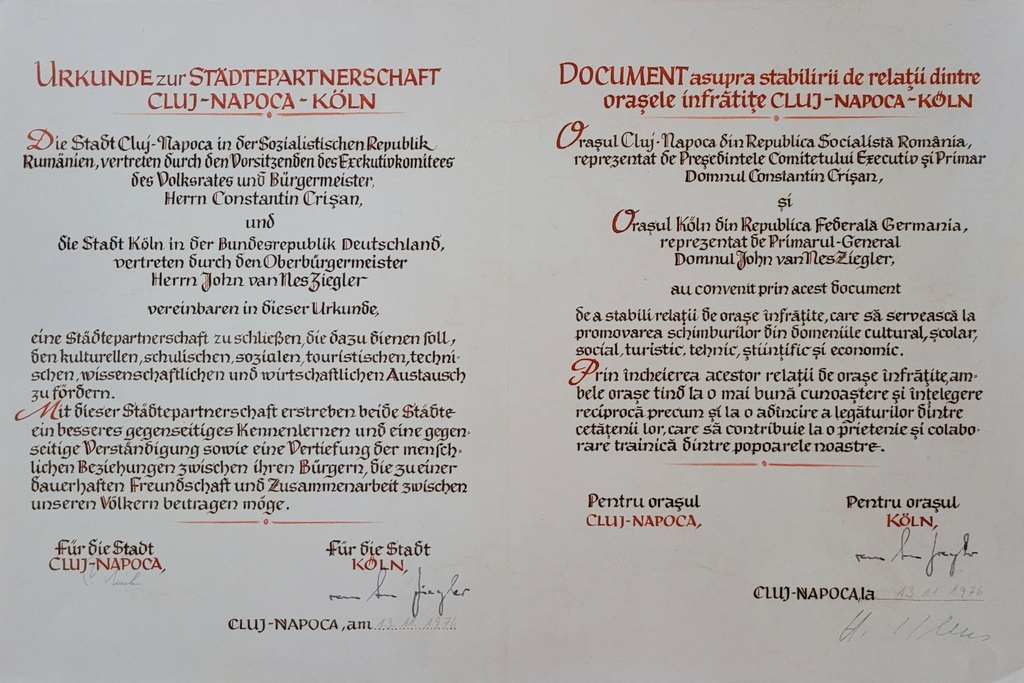 URKUNDE zur STÄDTEPARTNERSCHAFT
CLUJ-NAPOCA - KÖLN
Die Stadt Cluj-Napoca in der Sozialistischen Republik
Rumänien, vertreten durch den Vorsitzenden des Exekutivkomitees
des Volksrates und Bürgermeister,
Herrn Constantin Crişan,
und
die Stadt Köln in der Bundesrepublik Deutschland,
vertreten durch den Oberbürgermeister
Herrn John van Nes Ziegler
vereinbaren in dieser Urkunde,
eine Städtepartnerschaft zu schließen, die dazu dienen soll,
den kulturellen, schulischen, sozialen, touristischen, techni-
schen, wissenschaftlichen und wirtschaftlichen Austausch
zu fördern.
Mit dieser Städtepartnerschaft erstreben beide Städte
ein besseres gegenseitiges Kennenlernen und eine gegen-
seitige Verständigung sowie eine Vertiefung der mensch-
lichen Beziehungen zwischen ihren Bürgern, die zu einer
dauerhaften Freundschaft und Zusammenarbeit zwischen
unseren Völkern beitragen möge.
Für die Stadt
CLUJ-NAPOCA,
Für die Stadt
KÖLN,
van Nes Ziegler
CLUJ-NAPOCA, am 13.11.1976
DOCUMENT asupra stabilirii de relaţii dintre
oraşele înfrăţite CLUJ-NAPOCA-KÖLN
Oraşul Cluj-Napoca din Republica Socialistă România,
reprezentat de Preşedintele Comitetului Executiv şi Primar
Domnul Constantin Crişan,
şi
Oraşul Köln din Republica Federală Germania,
reprezentat de Primarul-General
Domnul John van Nes Ziegler,
au convenit prin acest document
de a stabili relaţii de oraşe înfrăţite, care să servească la
promovarea schimburilor din domeniile cultural, şcolar,
social, turistic, tehnic, ştiinţific şi economic.
Prin încheierea acestor relaţii de oraşe înfrăţite, am-
bele oraşe tind la o mai bună cunoaştere şi înţelegere
reciprocă precum şi la o adîncire a legăturilor dintre
cetăţenii lor, care să contribuie la o prietenie şi colabo-
rare trainică dintre popoarele noastre.
Pentru oraşul
CLUJ-NAPOCA,
Pentru oraşul
KÖLN,
van Nes Ziegler
CLUJ-NAPOCA, la 13 11 1976